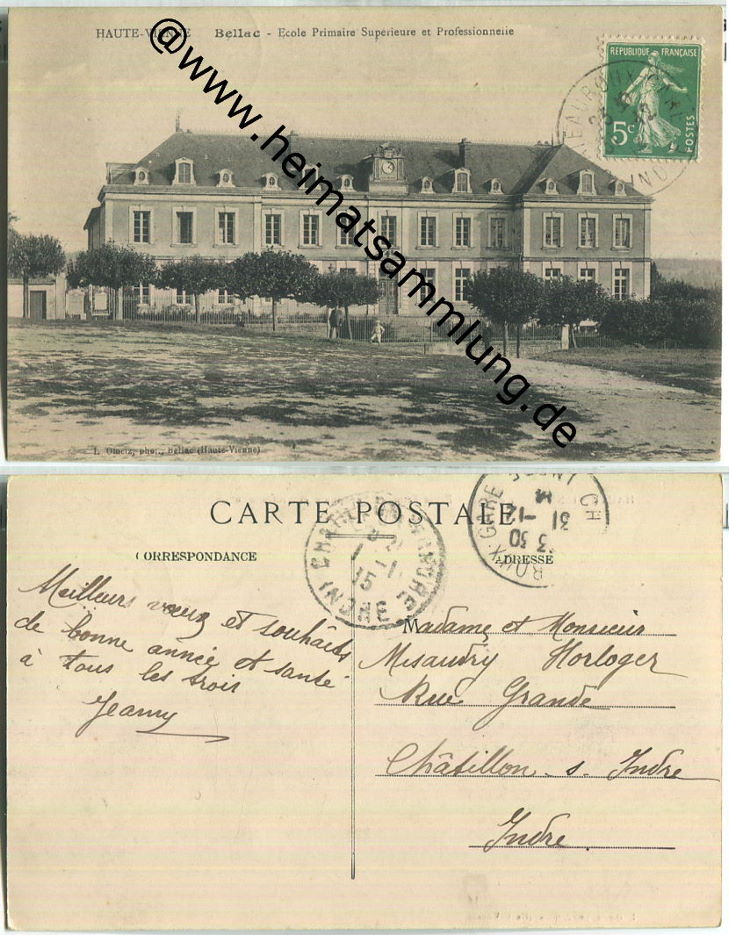 HAUTE-VIENNE Bellac - Ecole Primaire Supérieure et Professionnelle
RÉPUBLIQUE FRANÇAISE
5c
POSTES
@www.heimatsammlung.de
phot., Bellac (Haute-Vienne)
CARTE POSTALE
CORRESPONDANCE
ADRESSE
Meilleurs vœux et souhaits
de bonne année et santé
à tous les trois
Jeanny
Madame et Monsieur
Misaudry Horloger
Rue Grande
Châtillon s. Indre
Indre